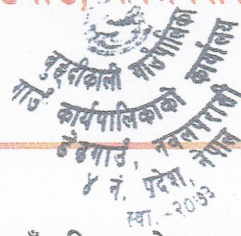 बुङ्दीकाली गाउँपालिका
गाउँ कार्यपालिकाको कार्यालय
नवलपरासी
४ नं. प्रदेश, नेपाल
स्था.-२०७३